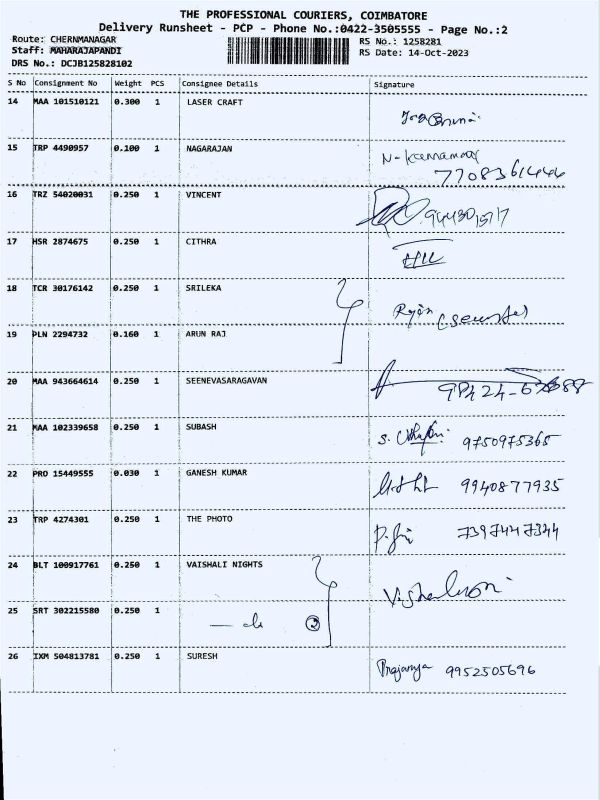 THE PROFESSIONAL COURIERS, COIMBATORE
Delivery Runsheet - PCP - Phone No.:0422-3505555 - Page No.:2
Route: CHERNMANAGAR
RS No.: 1258281
Staff: MAHARAJAPANDI
RS Date: 14-Oct-2023
DRS No.: DCJB125828102
S No Consignment No Weight PCS Consignee Details Signature
14 MAA 101510121 0.300 1 LASER CRAFT
15 TRP 4490957 0.100 1 NAGARAJAN
16 TRZ 54020031 0.250 1 VINCENT
17 HSR 2874675 0.250 1 CITHRA
18 TCR 30176142 0.250 1 SRILEKA
19 PLN 2294732 0.160 1 ARUN RAJ
20 MAA 943664614 0.250 1 SEENEVASARAGAVAN
21 MAA 102339658 0.250 1 SUBASH 9750975365
22 PRO 15449555 0.030 1 GANESH KUMAR 9940877935
23 TRP 4274301 0.250 1 THE PHOTO 7397447344
24 BLT 100917761 0.250 1 VAISHALI NIGHTS
25 SRT 302215580 0.250 1 — do 2
26 IXM 504813781 0.250 1 SURESH 9952505696